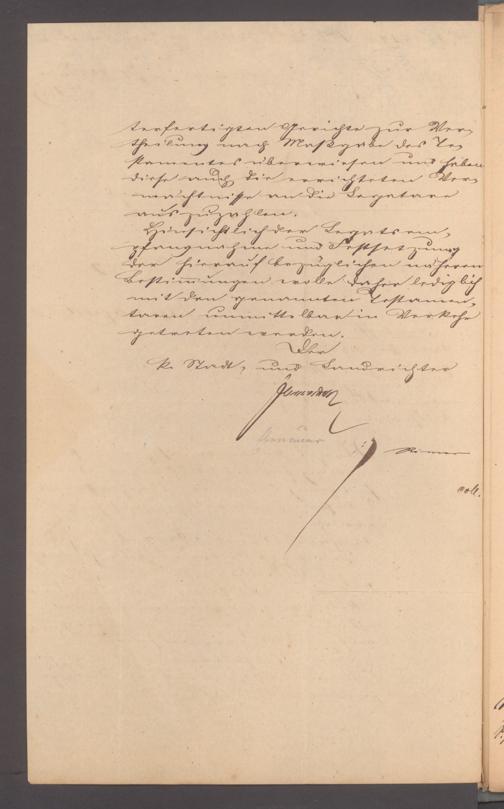 terfertigten Gerichte zur Ver-
theilung nach Maßgabe des Te-
stamentes überwiesen und haben
diese auch die errichteten Ver-
mächtnisse an die Legatare
auszuzahlen.
Hinsichtlich der Legatsem-
pfangnahme und Festsetzung
der hierauf bezüglichen näheren
Bestimmungen wolle daher lediglich
mit den genannten Testamen-
taren unmittelbar in Verkehr
getreten werden.
Der
k. Stadt- und Landrichter
coll.